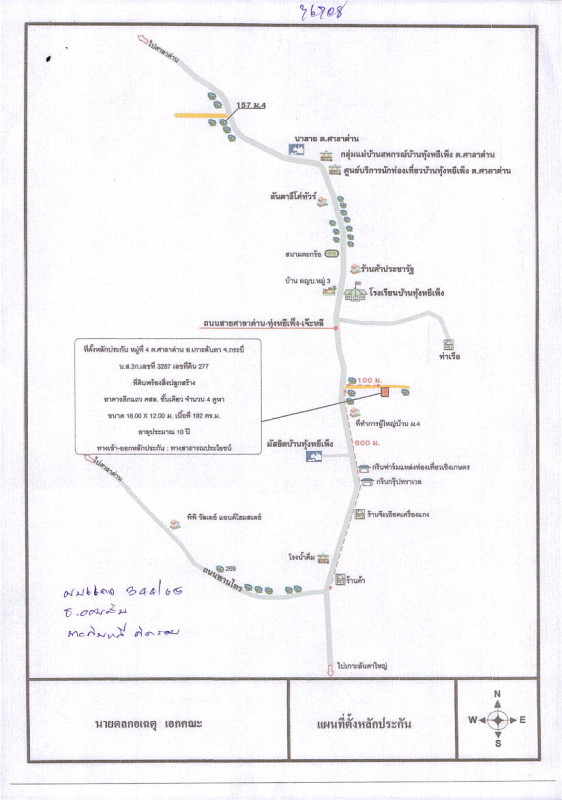 ไปศาลาด่าน
157 ม.4
บาลาย ต.ศาลาด่าน
กลุ่มแม่บ้านสหกรณ์บ้านทุ่งหยีเพ็ง ต.ศาลาด่าน
ศูนย์บริการนักท่องเที่ยวบ้านทุ่งหยีเพ็ง ต.ศาลาด่าน
ลันตาอีโค่ทัวร์
สนามตะกร้อ
ร้านค้าประชารัฐ
บ้าน ผญบ.หมู่ 3
โรงเรียนบ้านทุ่งหยีเพ็ง
ถนนสายศาลาด่าน-ทุ่งหยีเพ็ง-เจ๊ะหลี
ท่าเรือ
ที่ตั้งหลักประกัน หมู่ที่ 4 ต.ศาลาด่าน อ.เกาะลันตา จ.กระบี่
น.ส.3ก.เลขที่ 3287 เลขที่ดิน 277
ที่ดินพร้อมสิ่งปลูกสร้าง
อาคารตึกแถว คสล. ชั้นเดียว จำนวน 4 คูหา
ขนาด 16.00 X 12.00 ม. เนื้อที่ 192 ตร.ม.
อายุประมาณ 10 ปี
ทางเข้า-ออกหลักประกัน : ทางสาธารณประโยชน์
100 ม.
ที่ทำการผู้ใหญ่บ้าน ม.4
600 ม.
มัสยิดบ้านทุ่งหยีเพ็ง
ไปศาลาด่าน
กรีนฟาร์มแหล่งท่องเที่ยวเชิงเกษตร
กรีนกรุ๊ปทราเวล
ร้านจ๊ะเยียดเครื่องแกง
พีพี วัลเลย์ แอนด์โฮมสเตย์
โรงน้ำดื่ม
269
ถนนพานไทร
ร้านค้า
344/65
ไปเกาะลันตาใหญ่
แผนที่ตั้งหลักประกัน
N
W
E
S